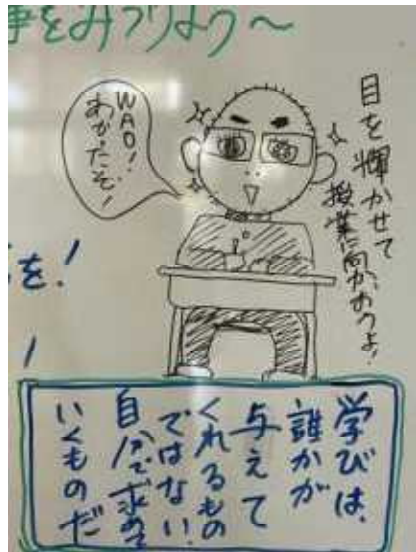 事をみつけよう〜
WAO!
わかったぞ!
目を輝かせて
授業に向かおうよ!
を!
!
学びは、
誰かが
与えて
くれるもの
ではない。
自分で求めて
いくものだ